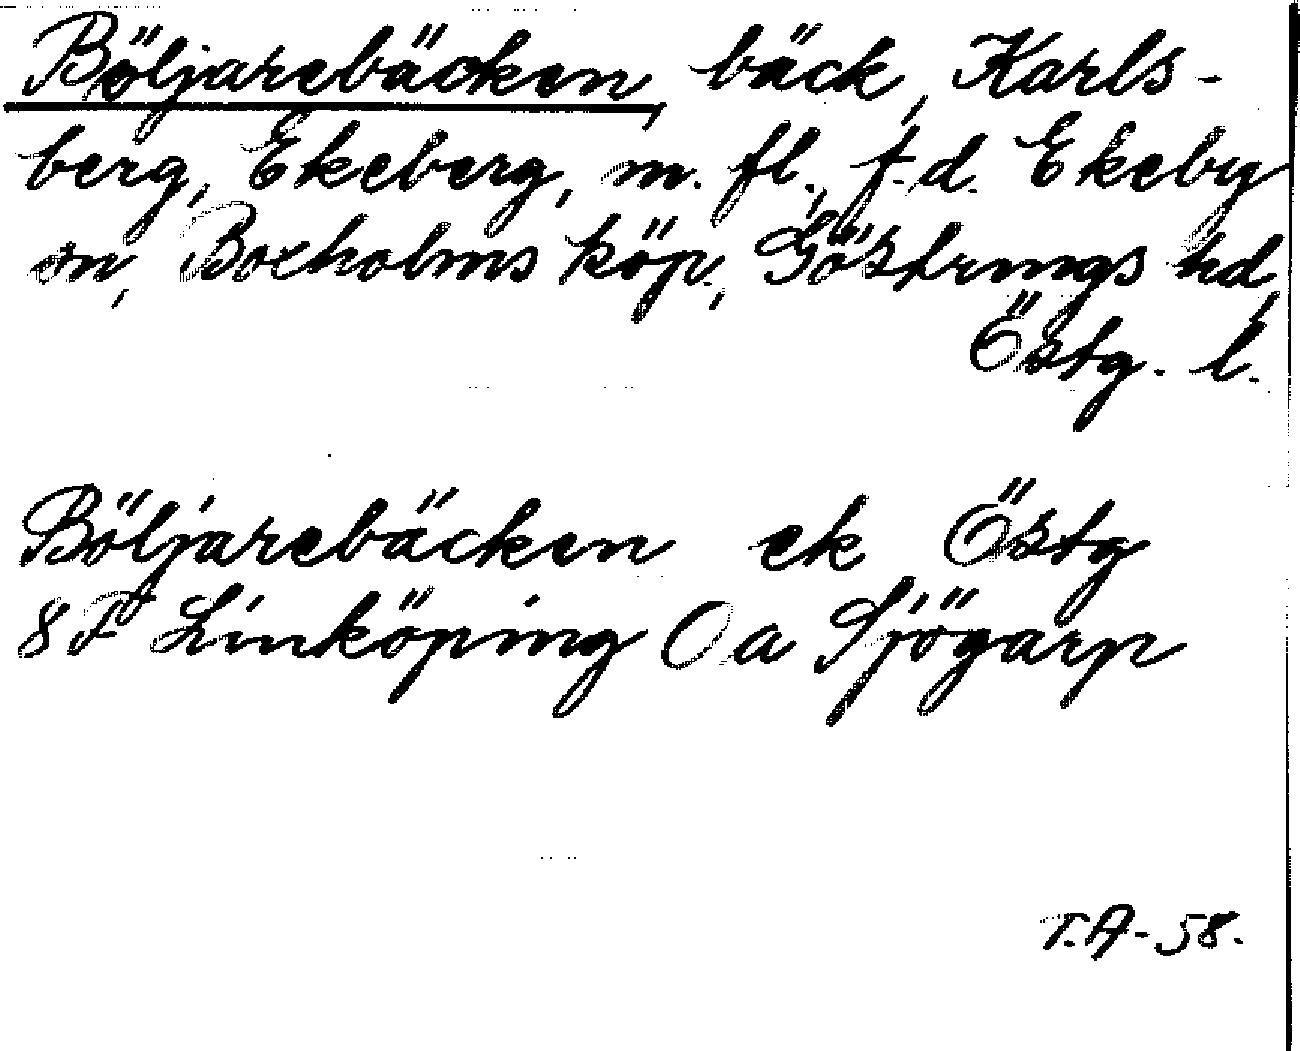 Böljarebäcken, bäck, Karls-
berg, Ekeberg, m. fl., f.d. Ekeby
sn, Boxholms köp., Göstrings hd,
Östg. l.
Böljarebäcken ek Östg
8 F Linköping O a Sjögarp
T.A-58.